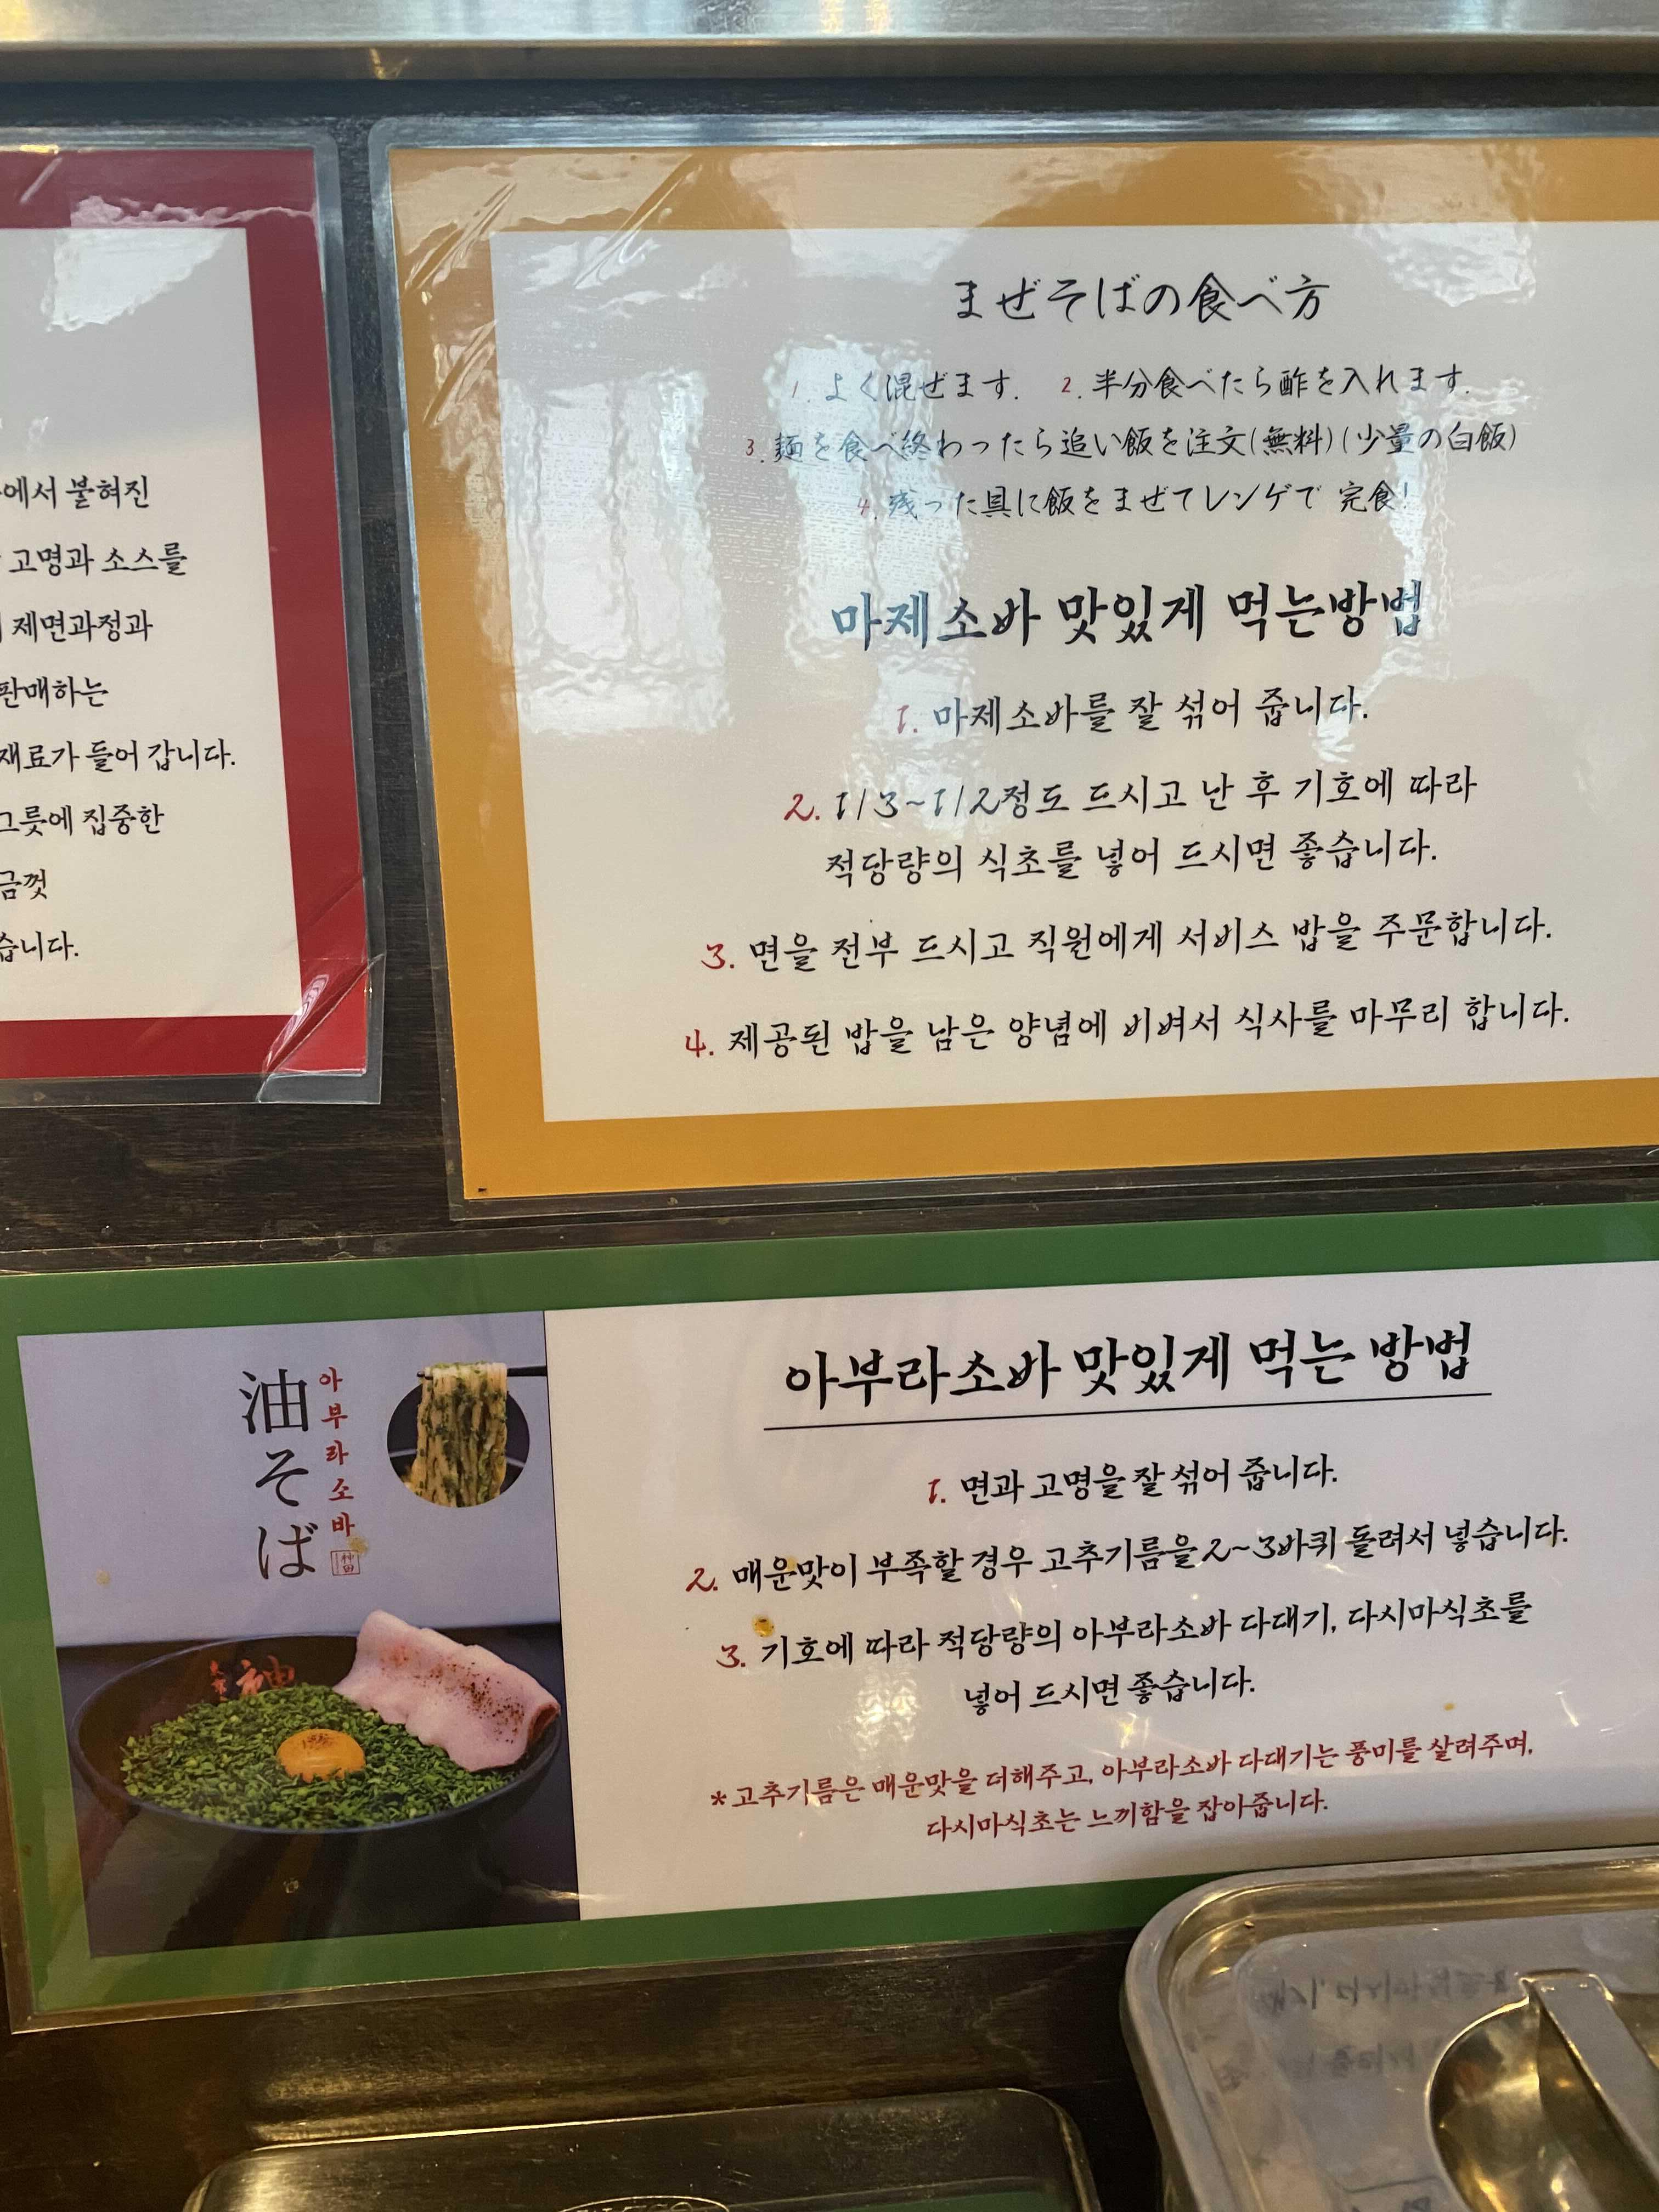 에서 붙혀진
고명과 소스를
제면과정과
판매하는
재료가 들어 갑니다.
그릇에 집중한
금껏
습니다.
まぜそばの食べ方
1. よく混ぜます. 2. 半分食べたら酢を入れます.
3. 麺を食べ終わったら追い飯を注文(無料)(少量の白飯)
4. 残った具に飯をまぜてレンゲで 完食!
마제소바 맛있게 먹는방법
1. 마제소바를 잘 섞어 줍니다.
2. 1/3~1/2정도 드시고 난 후 기호에 따라
적당량의 식초를 넣어 드시면 좋습니다.
3. 면을 전부 드시고 직원에게 서비스 밥을 주문합니다.
4. 제공된 밥을 남은 양념에 비벼서 식사를 마무리 합니다.
油そば
아부라소바
神田
神
아부라소바 맛있게 먹는 방법
1. 면과 고명을 잘 섞어 줍니다.
2. 매운맛이 부족할 경우 고추기름을 2~3바퀴 돌려서 넣습니다.
3. 기호에 따라 적당량의 아부라소바 다대기, 다시마식초를
넣어 드시면 좋습니다.
*고추기름은 매운맛을 더해주고, 아부라소바 다대기는 풍미를 살려주며,
다시마식초는 느끼함을 잡아줍니다.